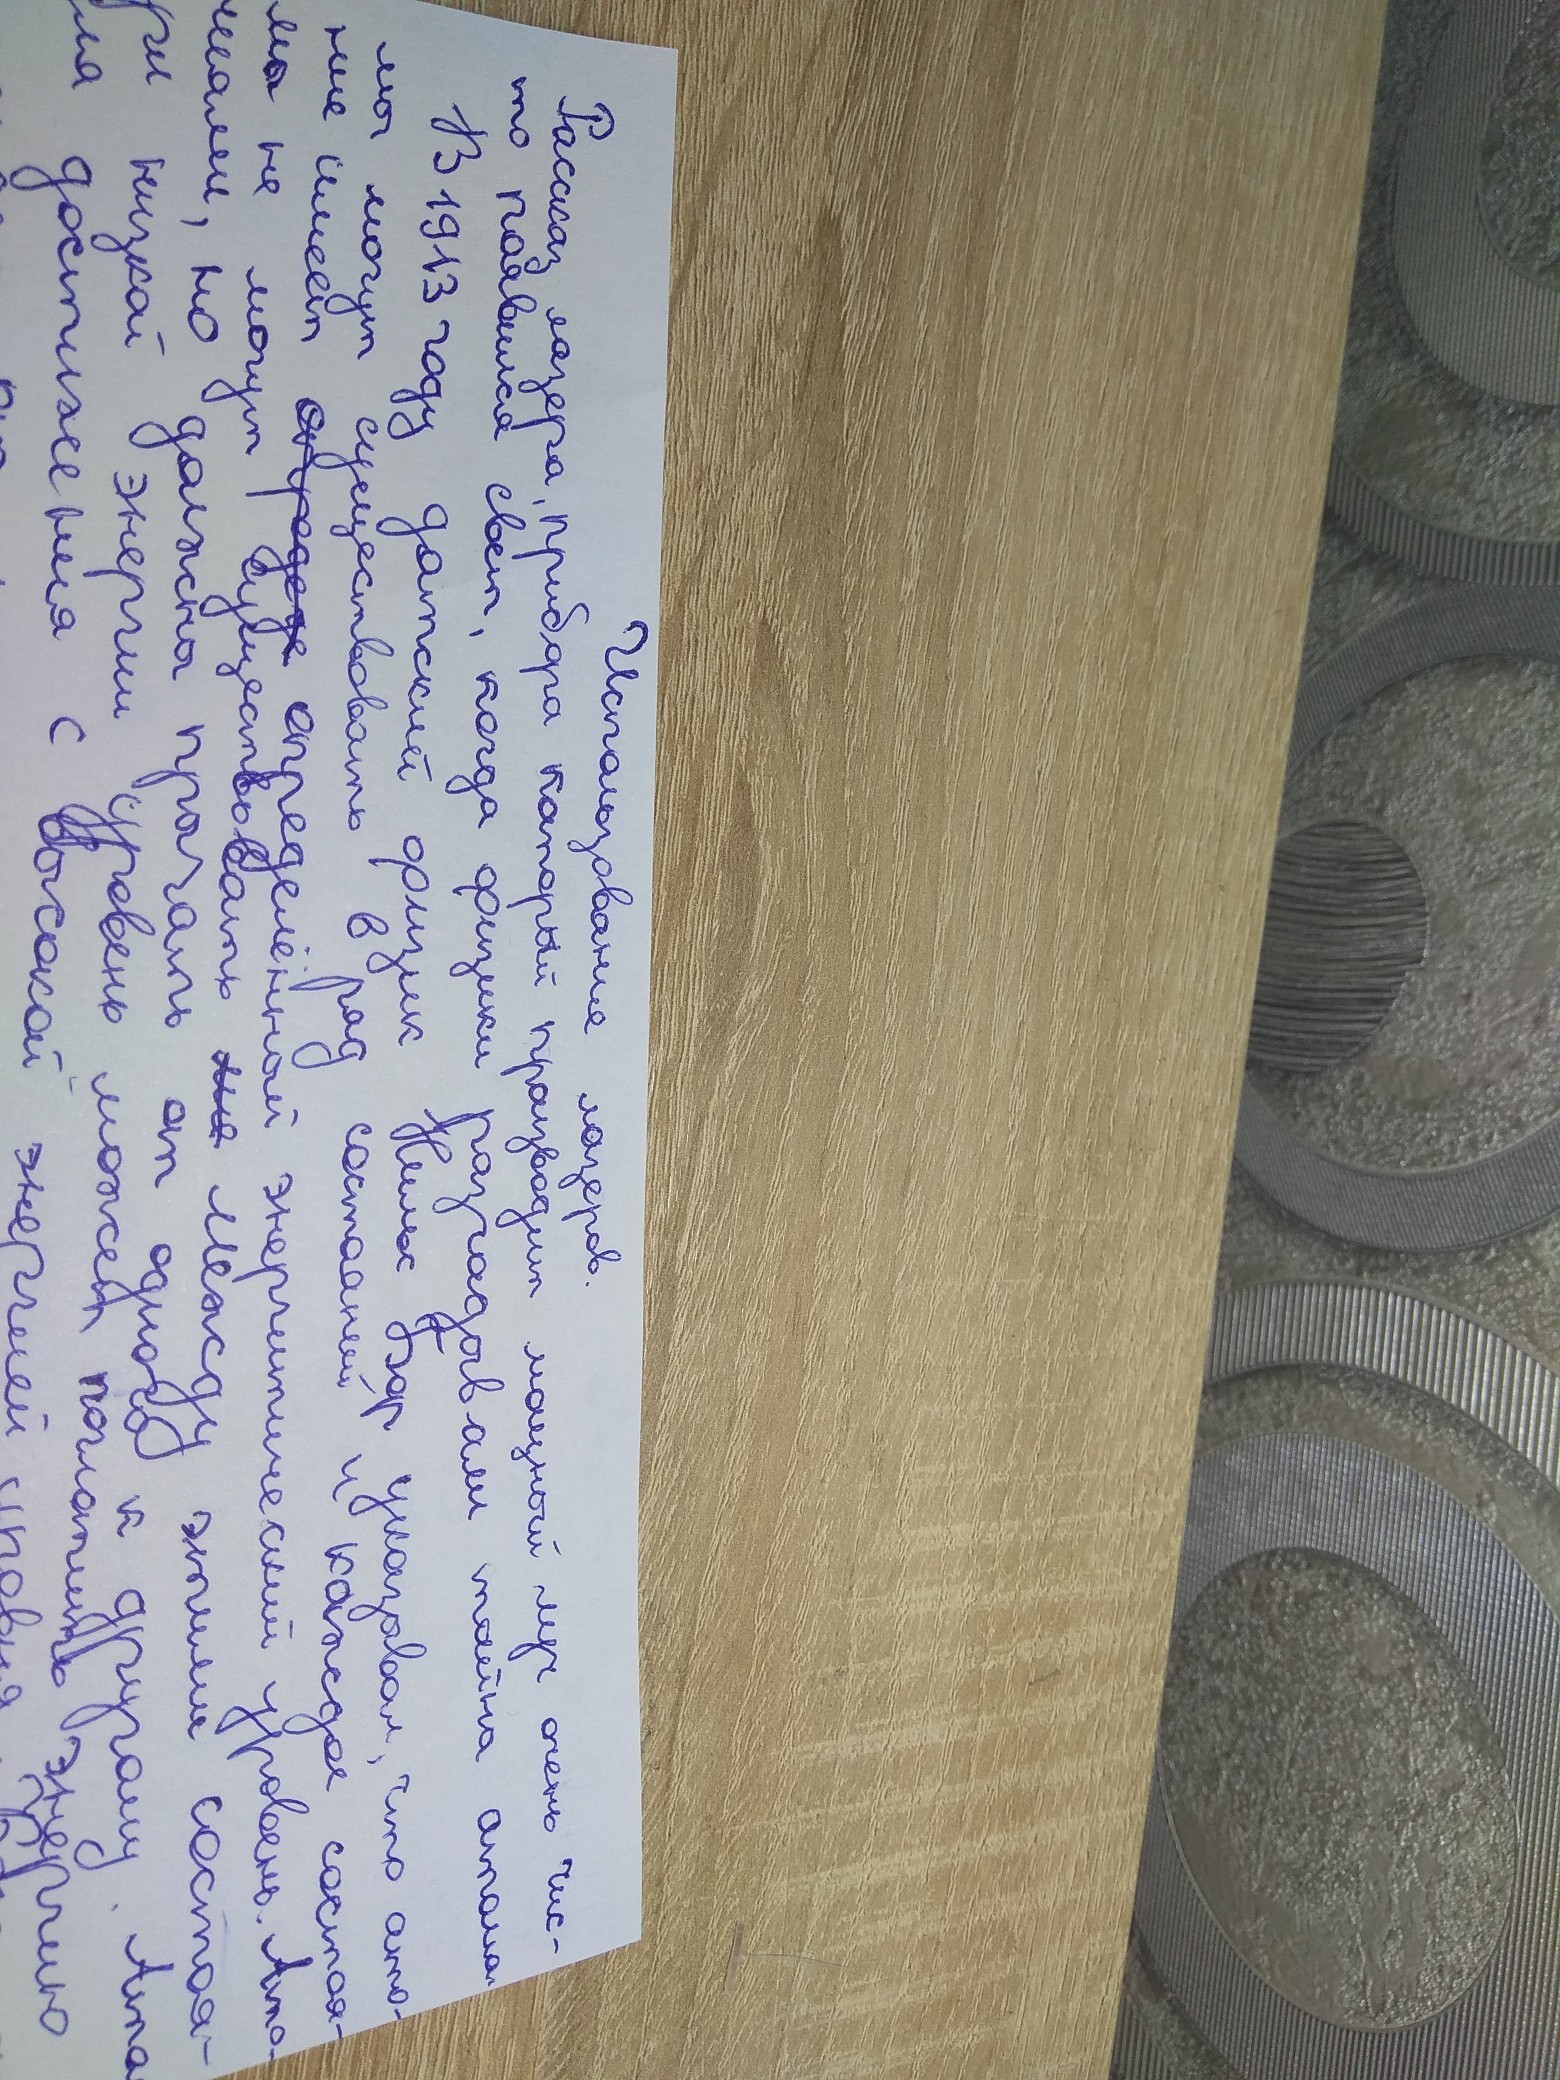 Использование лазеров.
Рассказ лазера, прибора каторый празводит мощный луч очень чис-
то паявился свет, когда физики разгадывали тайна атома
В 1913 году датский физик Нильс Бор указовал, что ато-
мы могут существовать в ряд состаяний и каждое состоя-
ние имеет определённый энергитический уровень. Ато-
мы не могут существовать между этими состоя-
ниями, но должны прыгать от одного к другому. Ато
низкой энергии уровень может поглатить энергию
достижения с высокой энергией уровня